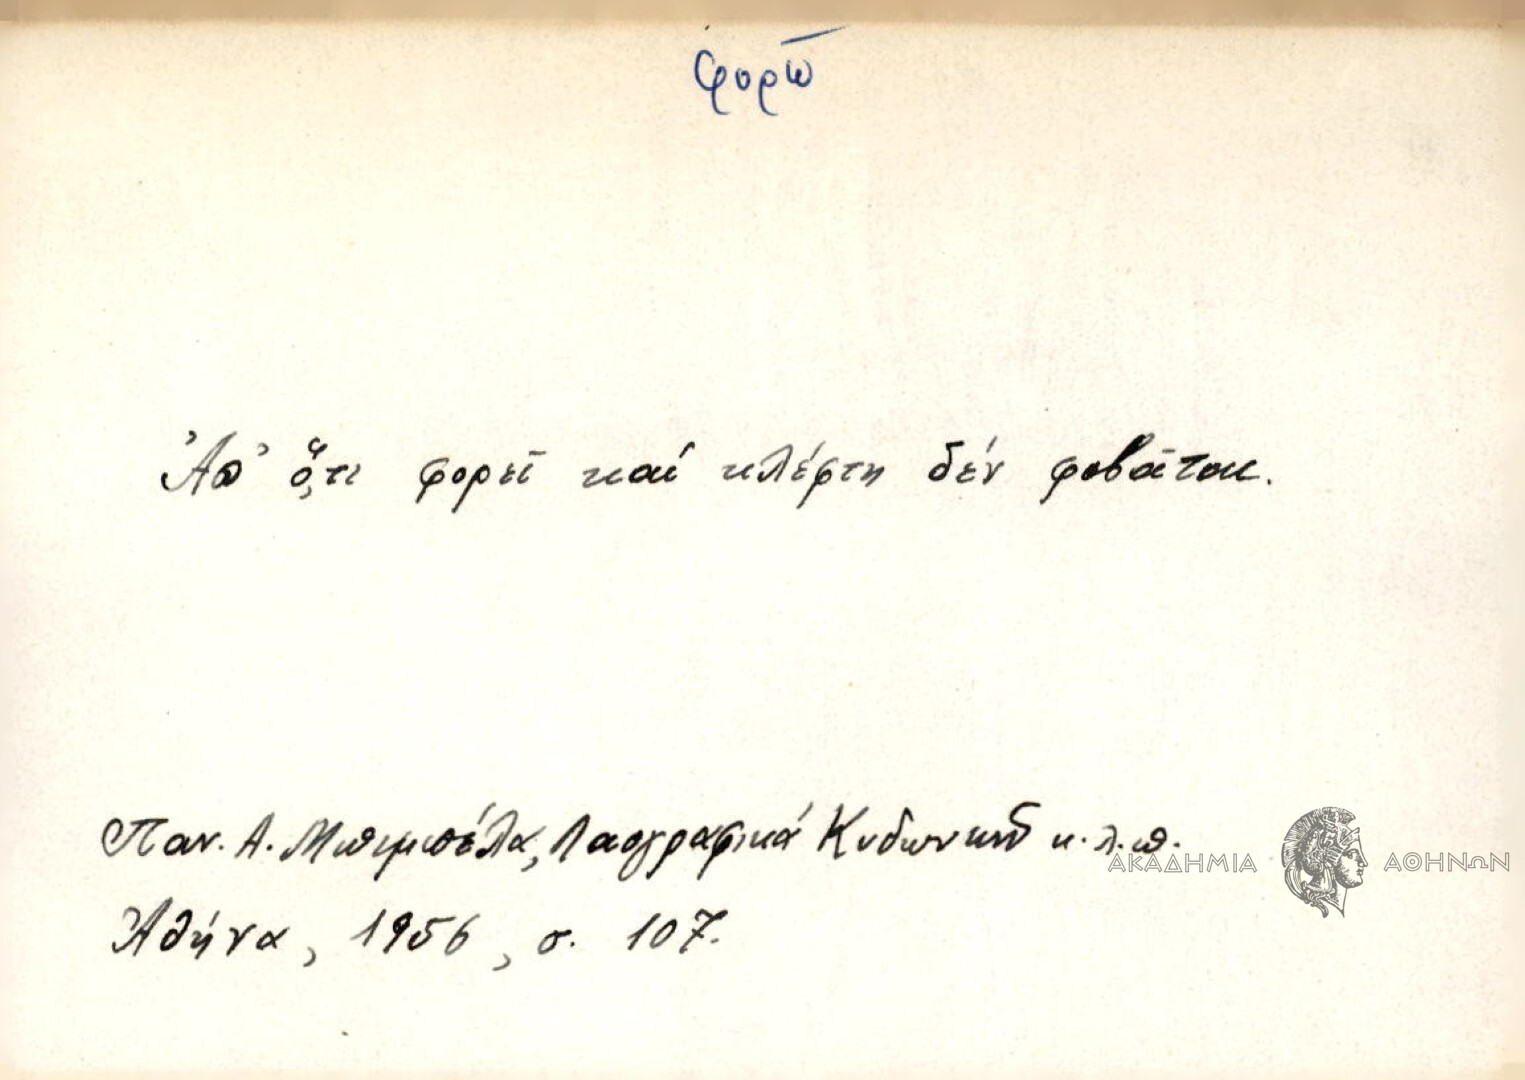 φορῶ
Ἀπ' ὅ,τι φορεῖ καί κλέφτη δέν φοβᾶται.
Παν. Α. Μπιμπέλα, Λαογραφικά Κυδωνιῶν κ.λ.π.
ΑΚΑΔΗΜΙΑ ΑΘΗΝΩΝ
Ἀθήνα, 1956, σ. 107.